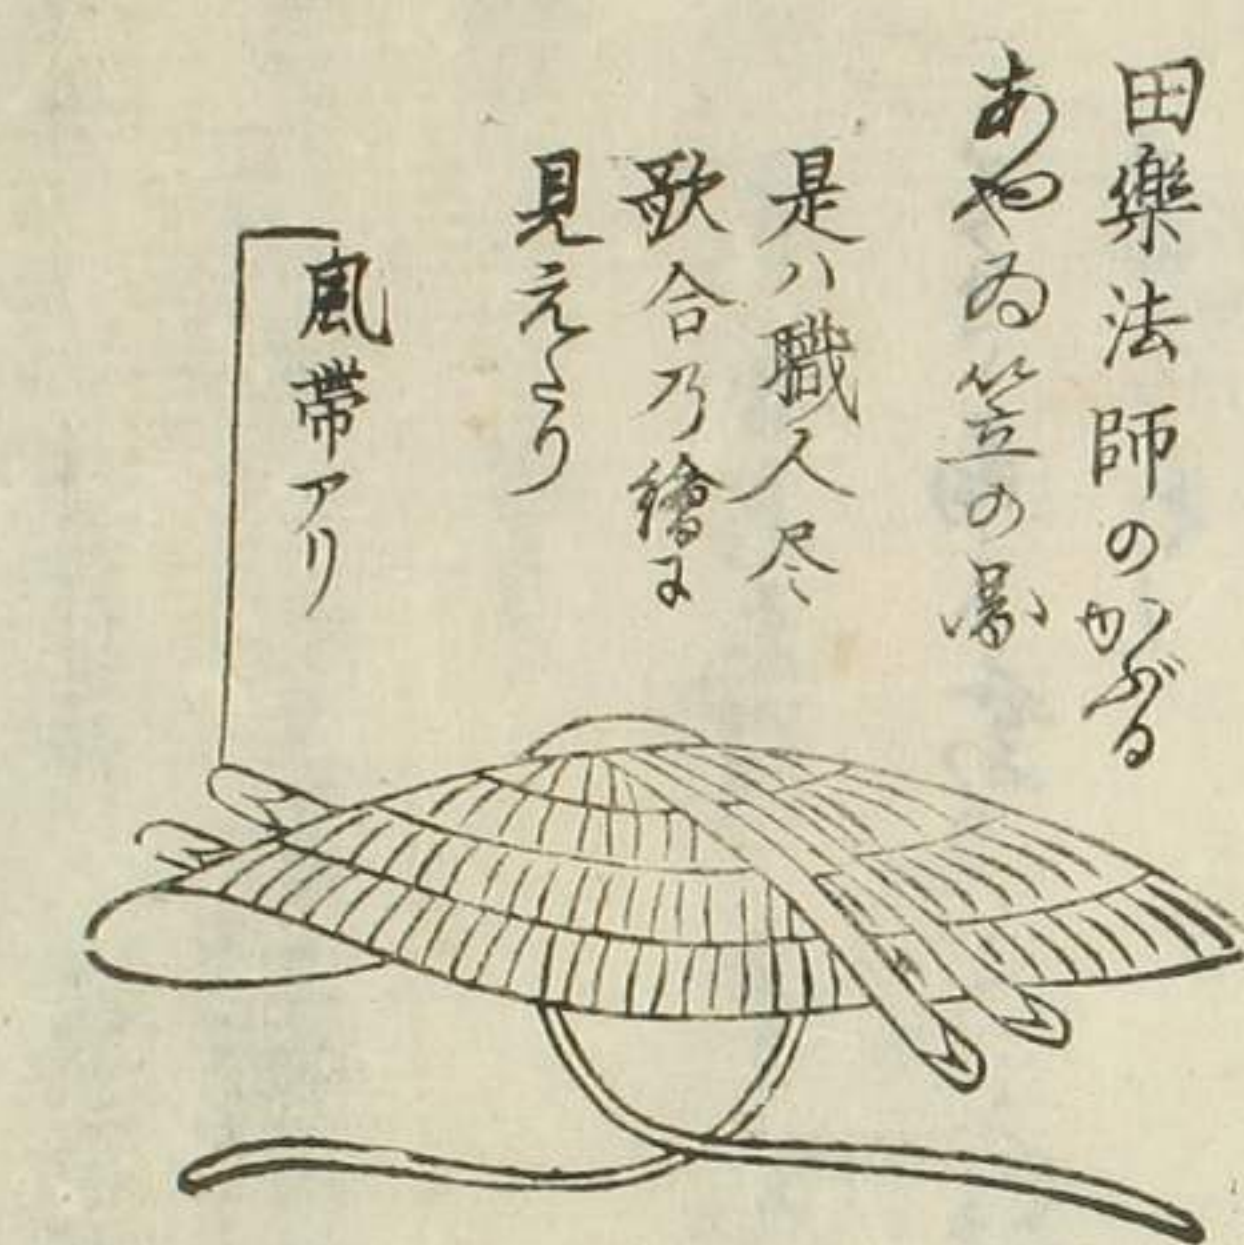 田樂法師のかぶる
あやゐ笠の圖
是ハ職人尽
歌合乃繪に
見えたり
風帯アリ